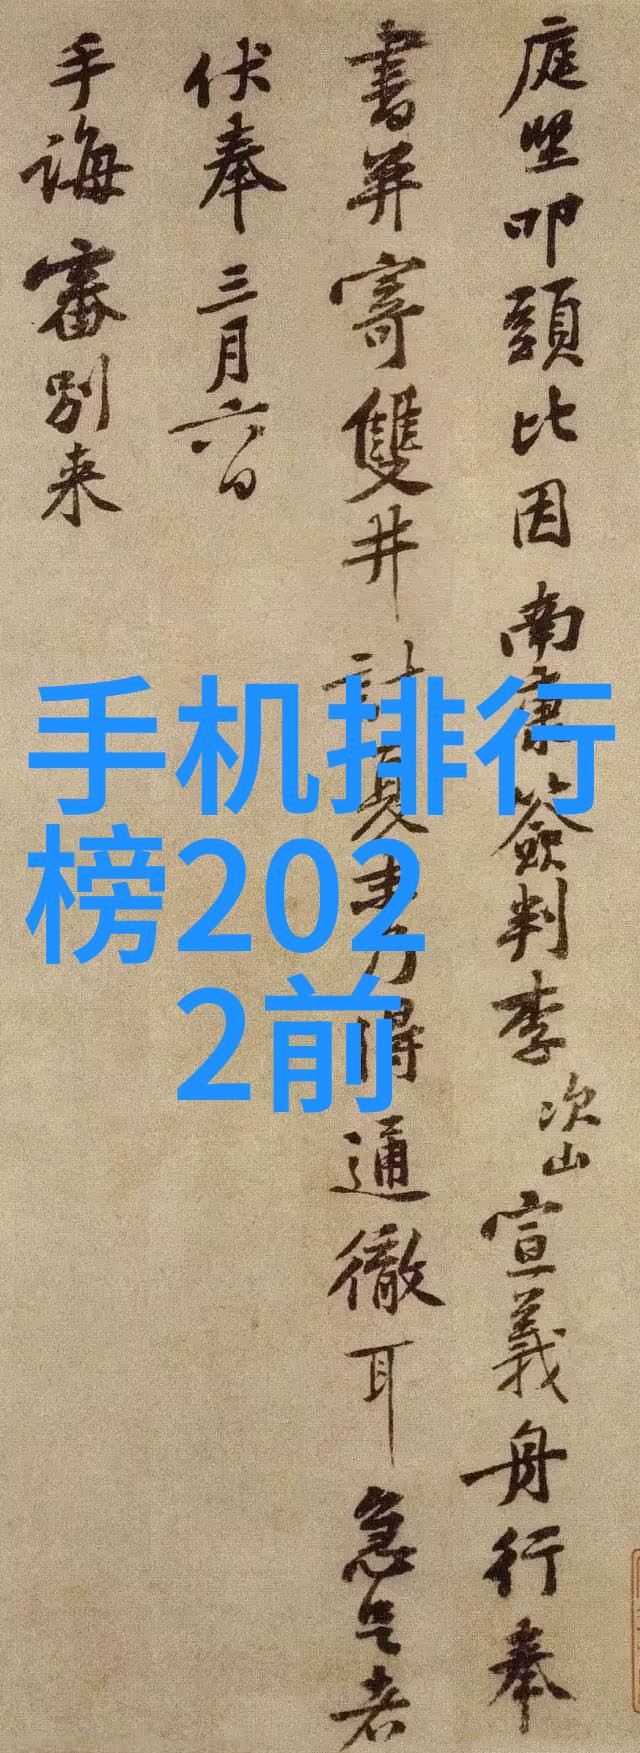 庭堅叩頭比因南康簽判李次山宣義舟行奉
書并寄雙井計夏末乃得通徹耳急足者
伏奉三月六日
手誨審別来
手机排行
榜202
2前